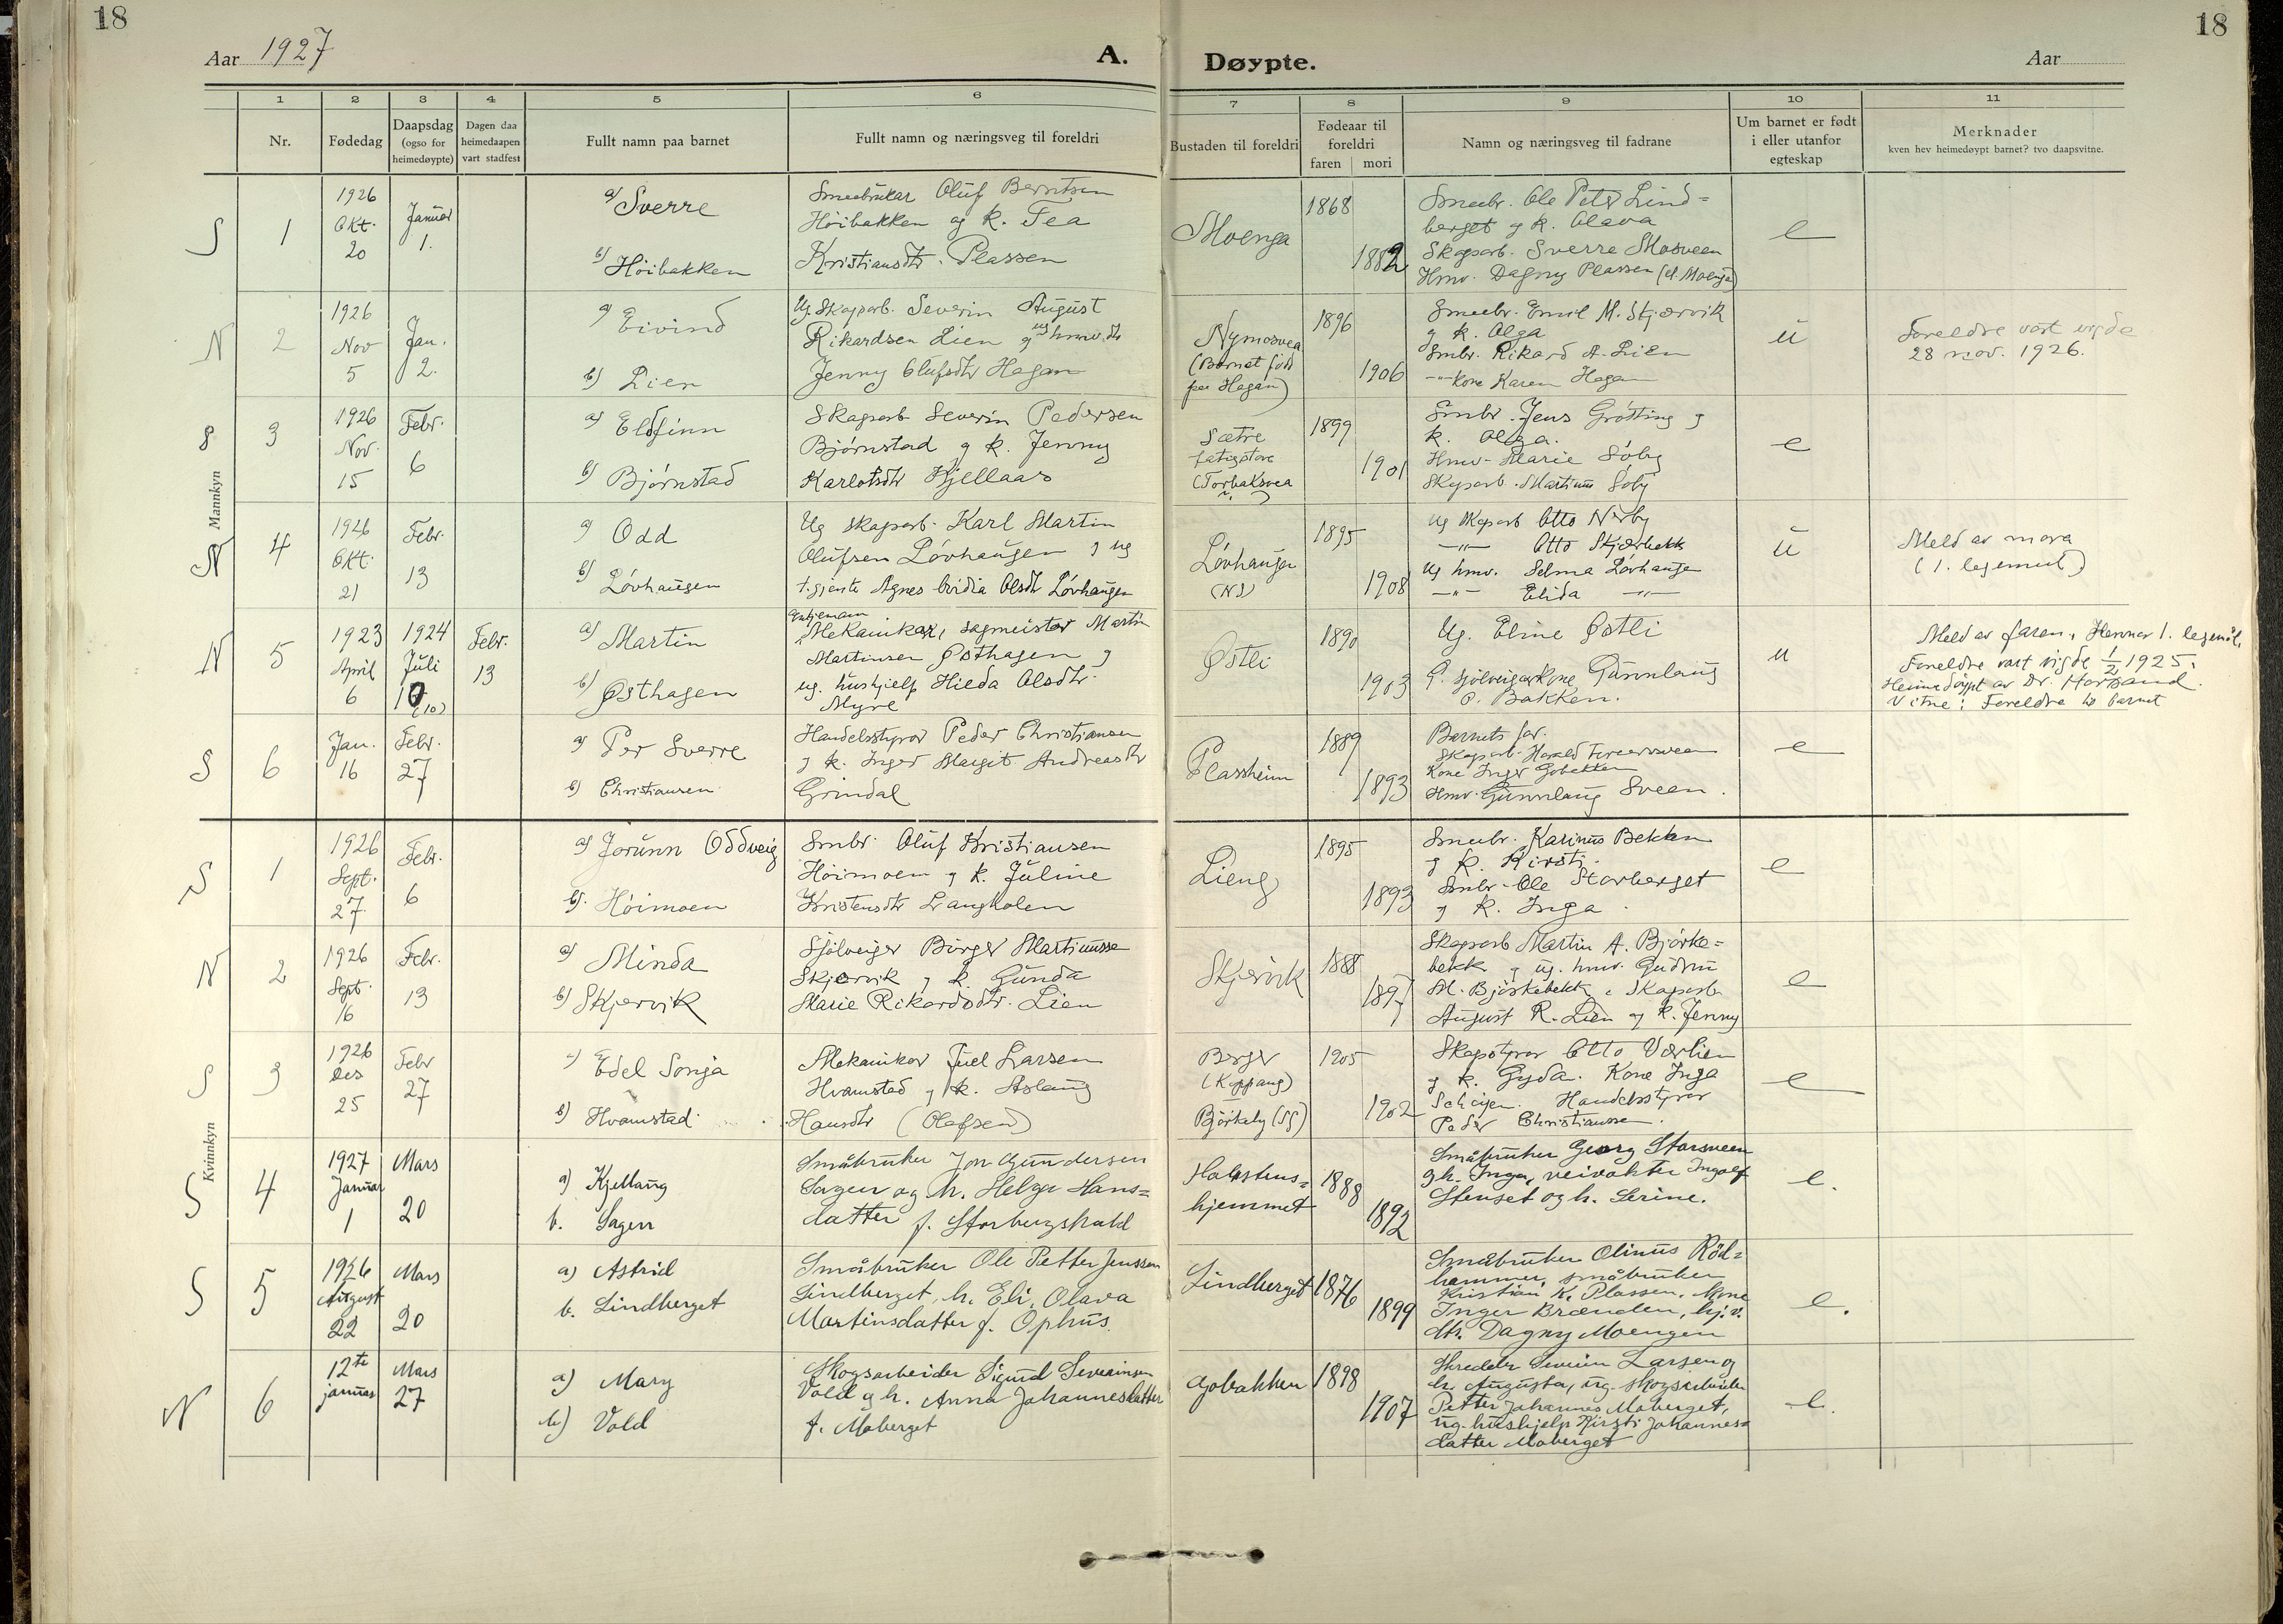 18
18
Aar 1927
A.
Døypte.
Aar
1 2 3 4 5 6 7 8 9 10 11
Nr.
Fødedag
Daapsdag
(ogso for
heimedøypte)
Dagen daa
heimedaapen
vart stadfest
Fullt namn paa barnet
Fullt namn og næringsveg til foreldri
Bustaden til foreldri
Fødeaar til
foreldri
faren mori
Namn og næringsveg til fadrane
Um barnet er født
i eller utanfor
egteskap
Merknader
kven hev heimedøypt barnet? tvo daapsvitne.
Mannkyn
S 1
1926
Okt.
20
Januar
1.
a) Sverre
b) Höibakken
Smaabrukar Oluf Berntsen
Höibakken og k. Tea
Kristiansdtr. Plassen
Moenga
1868
1882
Smaabr. Ole Peter Lind=
berget og k. Olava
Skogsarb. Sverre Mosveen
Hmv. Dagny Plassen (d. Moenga)
e
N 2
1926
Nov
5
Jan.
2.
a) Eivind
b) Lien
Ug. Skogsarb. Severin August
Rikardsen Lien og ug hmv. dtr
Jenny Olufsdtr Hagan
Nymosvea
(Barnet född
paa Hagan)
1896
1906
Smaabr. Emil M. Skjærvik
og k. Olga
Smbr. Rikard A. Lien
-"- kone Karen Hagan
u
Foreldre vart vigde
28 nov. 1926.
S 3
1926
Nov.
15
Febr.
6
a) Eldfinn
b) Bjørnstad
Skogsarb Severin Pedersen
Bjørnstad og k. Jenny
Karlotsdtr Kjellaas
Sætre
fatigstove
(Torbaksvea
1899
1901
Smbr. Jens Grötting og
k. Olga.
Hmv. Marie Söby
Skogsarb. Martinus Söby
e
N 4
1926
Okt.
21
Febr.
13
a) Odd
b) Lövhaugen
Ug skogsarb. Karl Martin
Olufsen Lövhaugen og ug
t.gjente Agnes Ovidia Olsdtr Lövhaugen
Lövhaugen
(N)
1895
1908
Ug skogsarb Otto Nerby
-"- Otto Skjærbekk
Ug hmv. Selma Lövhaugen
-"- Elida -"-
u
Meld av mora
(1. legemaal)
N 5
1923
April
6
1924
Juli
10
(10)
Febr.
13
a) Martin
b) Østhagen
Enkjemann
Mekanikar, sagmeister Martin
Martinsen Østhagen og
ug. hushjelp Hilda Olsdtr.
Myre
Østli
1890
1903
Ug. Eline Østli
G. sjölveigarkone Gunnlaug
O. Bakken.
u
Meld av faren. Hennar 1. legemål.
Foreldre vart vigde 1/2 1925.
Heimedöypt av Dr. Harsand.
Vitne: Foreldre to barnet
S 6
Jan.
16
Febr.
27
a) Per Sverre
b) Christiansen
Handelsstyrar Peder Christiansen
og k. Inger Margit Andreasdtr
Grindal
Plassheim
1889
1893
Barnets far.
Skogsarb. Harald
Kone Inger Gobakken
Hmv. Gunnlaug Sveen.
e
Kvinnkyn
S 1
1926
Sept.
27
Febr.
6
a) Jorunn Oddveig
b). Höimoen
Smbr. Oluf Kristiansen
Höimoen og k. Juline
Kristensdtr Langholen
Lieng
1895
1893
Smaabr. Karinus Bekken
og k. Kirsti.
Smbr. Ole Storberget
og k. Inga.
e
N 2
1926
Sept.
16
Febr.
13
a) Minda
b) Skjervik
Sjölveiger Birger Martinusse
Skjervik og k. Gunda
Marie Rikardsdtr. Lien
Skjervik
1888
1897
Skogsarb Martin A. Bjørke=
bekk og ug. hmv. Gudrun
M. Björkebekk, Skogsarb
August R. Lien og k. Jenny
e
S 3
1926
Des
25
Febr
27
a) Edel Sonja
b) Hvamstad
Mekanikar Juel Larsen
Hvamstad og k. Aslaug
Hansdtr (Olafsen)
Berger
(Koppang)
Björkely (Sg)
1905
1902
Skogstyrar Otto Værlien
og k. Gyda. Kone Inga
Scheijen. Handelsstyrar
Peder Christiansen.
e
S 4
1927
Januar
1
Mars
20
a) Kjellaug
b. Sagen
Småbruker Jon Gundersen
Sagen og h. Helga Hans=
datter f. Storbergshald
Halvstens=
hjemmet
1888
1892
Småbruker Georg Storsveen
og h. Inga, veivokter Ingolf
Stenset og h. Serine.
e.
S 5
1926
August
22
Mars
20
a) Astrid
b. Lindberget
Småbruker Ole Petter Jenssen
Lindberget, h. Eli, Olava
Martinsdatter f. Ophus.
Lindberget
1876
1899
Småbruker Olinus Röd=
hammer, småbruker
Kristian K. Plassen, kone
Inger Brænden, hj.v.
dtr. Dagny Moengen
e.
N 6
12te
januar
Mars
27
a) Mary
b) Vold
Skogsarbeider Sigurd Severinsen
Vold og h. Anna Johannesdatter
f. Moberget
Gobakken
1898
1907
Skredder Severin Larsen og
h. Augusta, ug. skogsarbeider
Petter Johannes Moberget,
ug. hushjelp Kirsti Johannes=
datter Moberget
e.